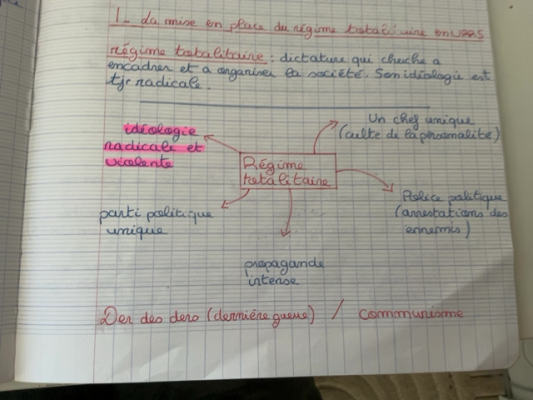 1- La mise en place du régime totalitaire en URSS
régime totalitaire : dictature qui cherche a
encadrer et a organiser la société. Son idéologie est
tjr radicale.
Un chef unique
(culte de la personnalité)
idéologie
radicale et
violente
Régime
totalitaire
Police politique
(arrestations des
ennemis)
parti politique
unique
propagande
intense
Der des ders (dernière guerre) / communisme